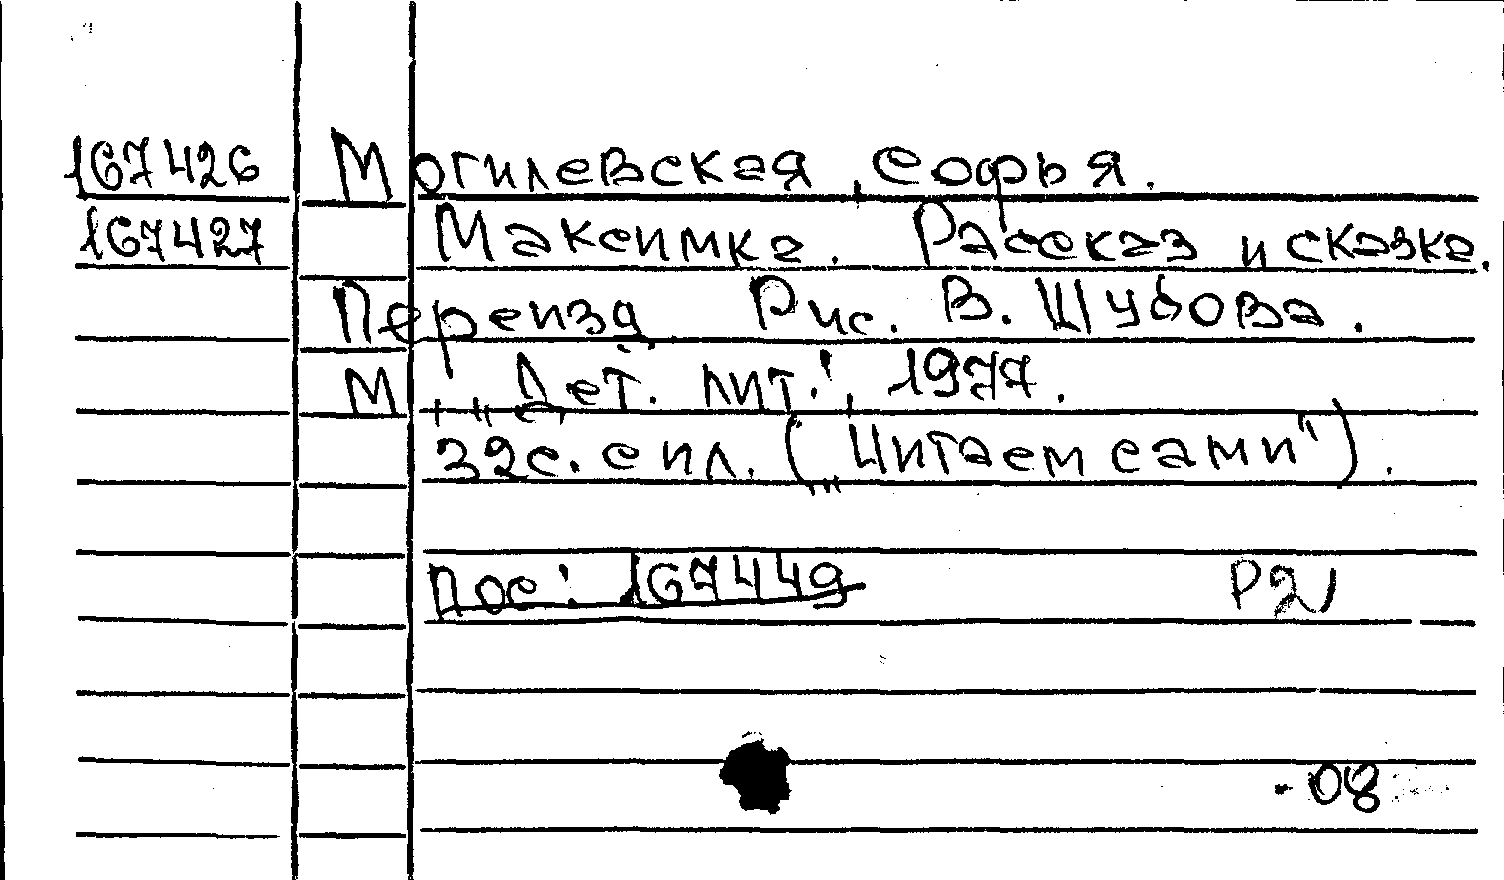 167426 Могилевская, Софья.
167427 Максимка. Рассказ и сказка.
Переизд. Рис. В. Шубова.
М., „Дет. лит.", 1977.
32с. с ил. („Читаем сами").
Пос: 167449 Р2
-08